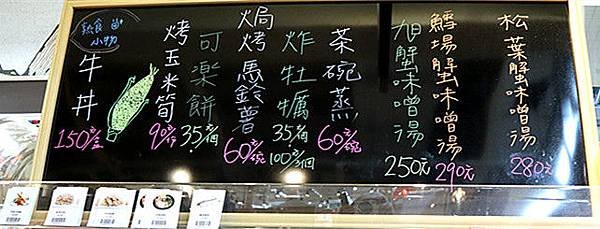 松葉蟹味噌湯
280元
鱈場蟹味噌湯
290元
旭蟹味噌湯
250元
茶碗蒸
60元/碗
炸牡蠣
35元/個
100元/3個
焗烤馬鈴薯
60元/碗
可樂餅
35元/個
烤玉米筍
90元/
牛丼
150元/盒
熱食
小物